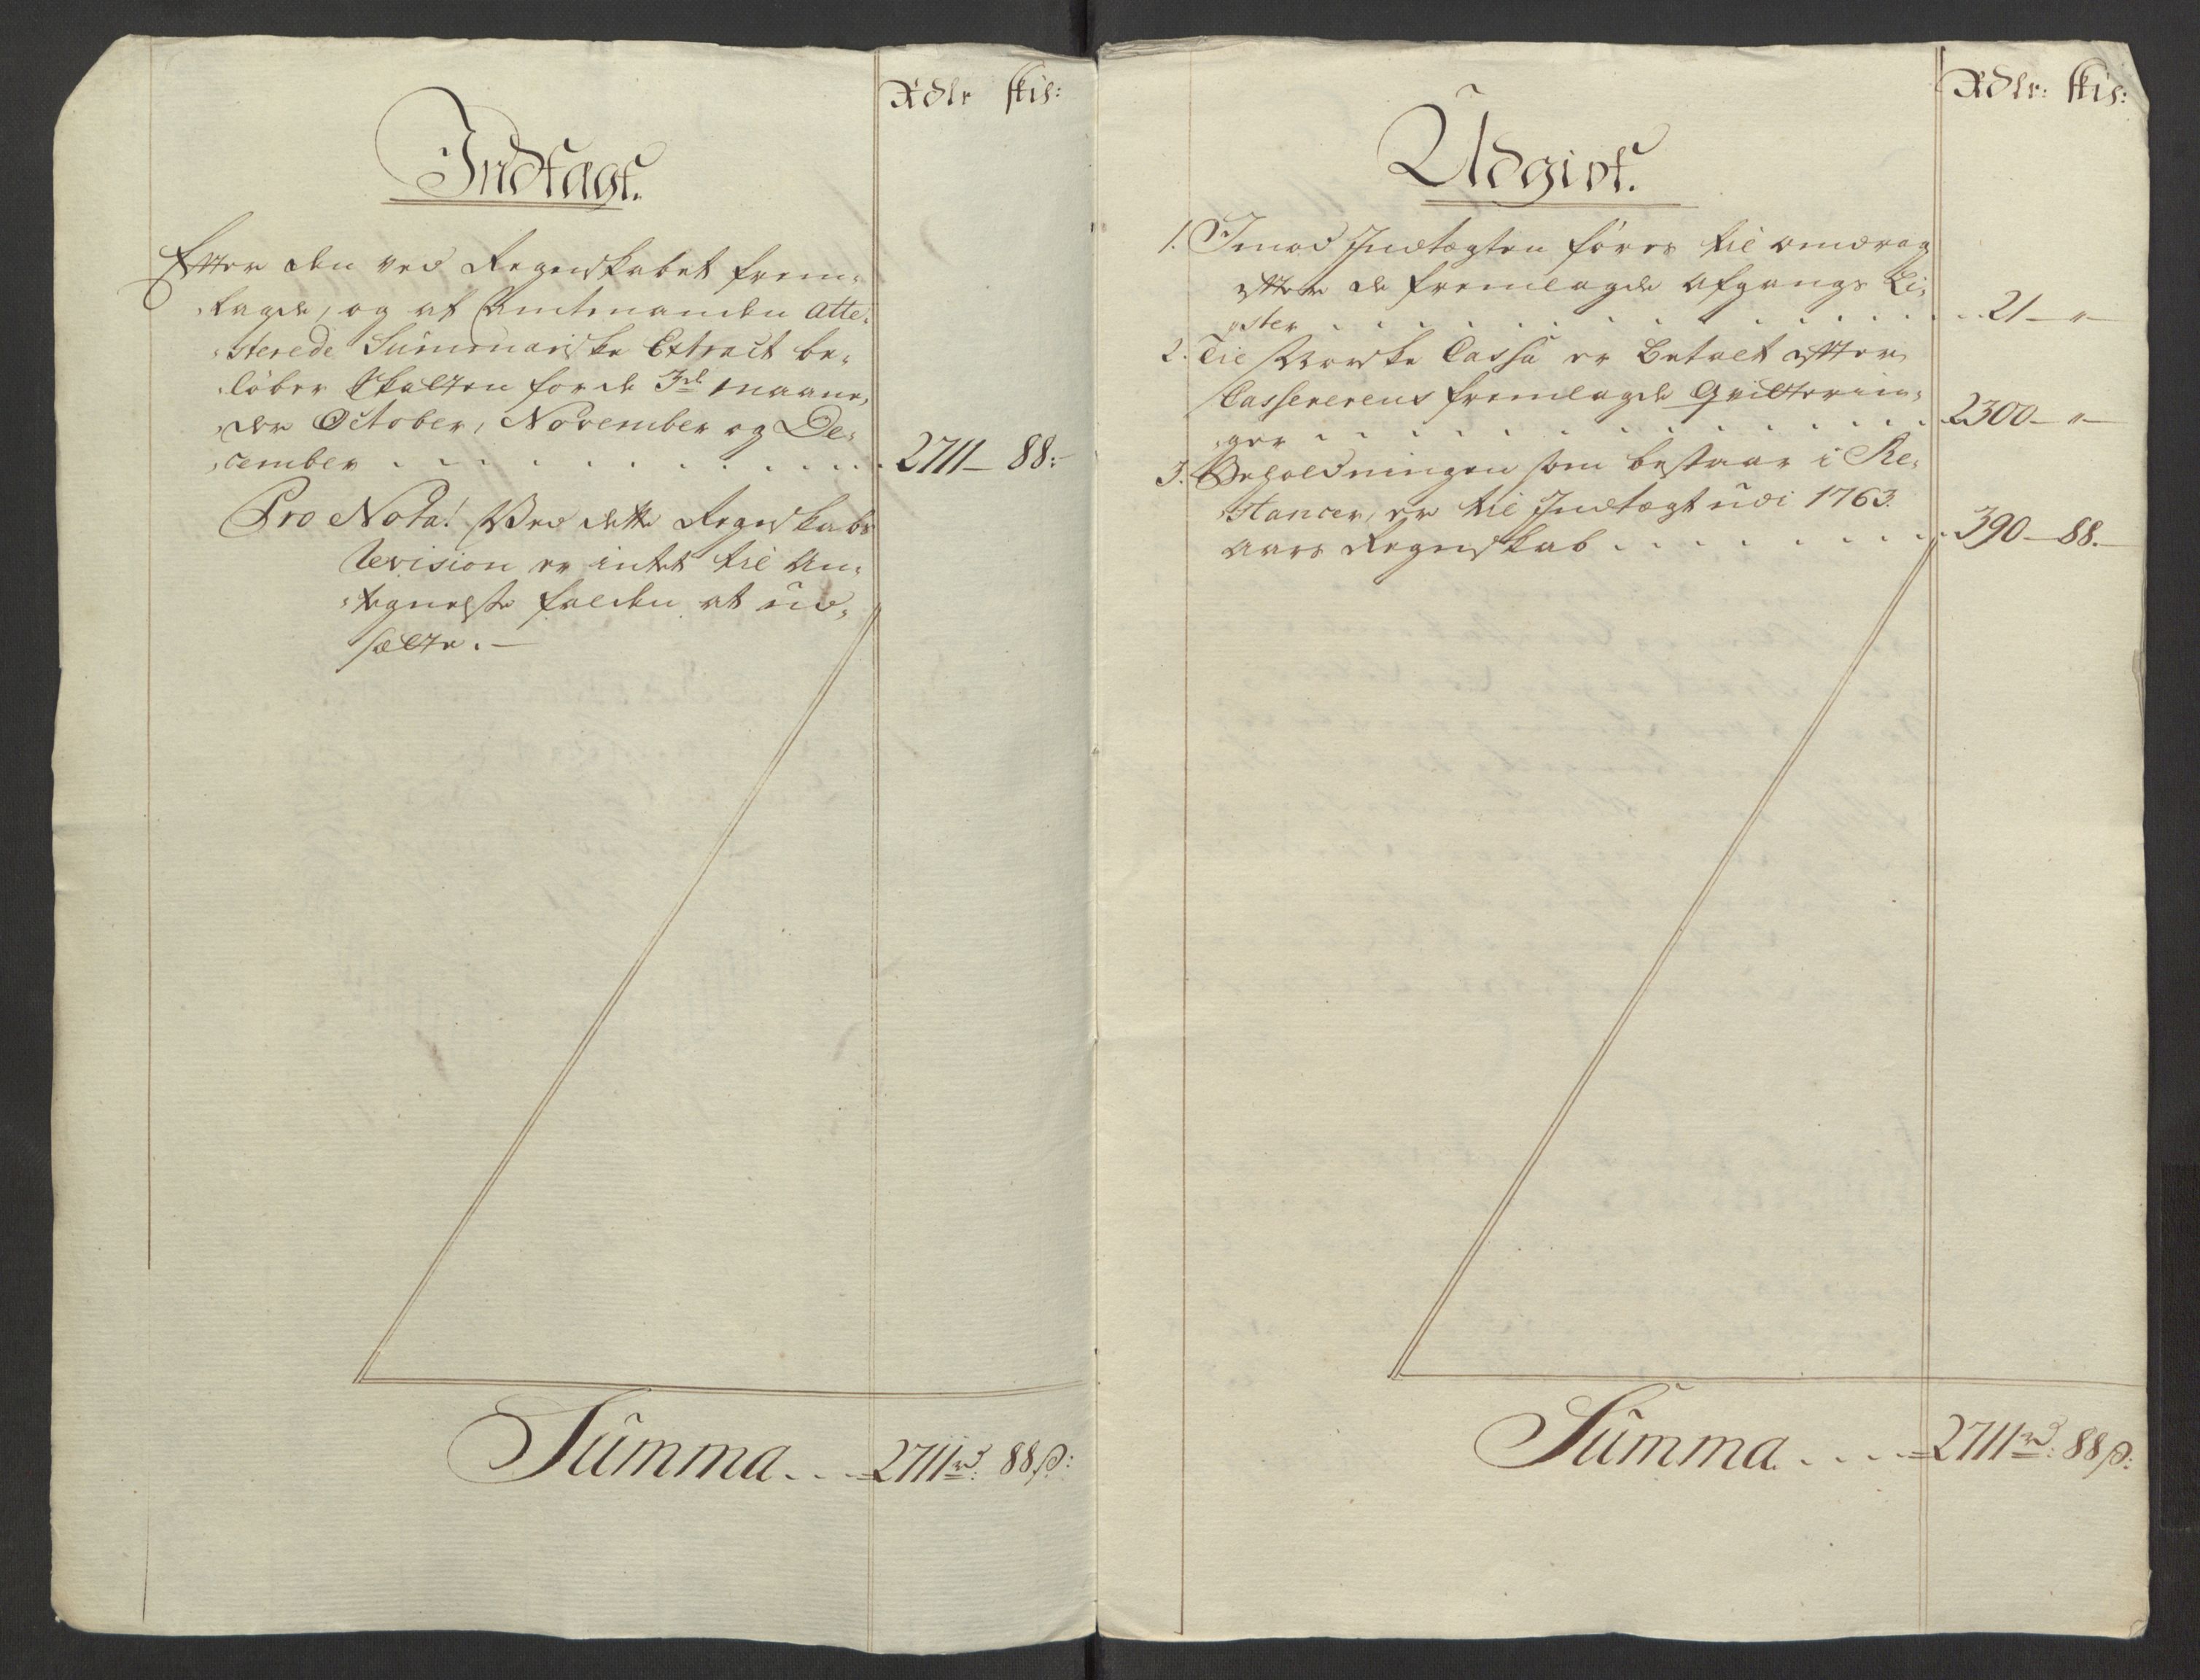 Rdlr skil:
Indtægt.
Efter den ved Regnskabet frem-
lagde, og af Amtmanden Atte-
sterede Summariske Extract be-
löber Skatten for de 3de Maane-
der October, November og De-
cember . . . . . . . . . . . . 2711 – 88:
Pro Nota! Ved dette Regnskabs
Revision er intet til An-
tegnelse falden at ud-
sætte. –
Summa . . . 2711 rd: 88 ß:
Rdlr: skil:
Udgivt.
1. Imod Indtægten föres til
efter de fremlagde Afgangs Li-
ster . . . . . . . . . . . . 21 – "
2. Til Norske Cassa er Betalt efter
Cassererens fremlagde Qvitterin-
ger . . . . . . . . . . . . 2300 – "
3. Beholdningen som bestaar i Re-
stancer, er til Indtægt udi 1763.
aars Regnskab . . . . . . . . 390 – 88. –
Summa . . . . 2711 rd: 88 ß: